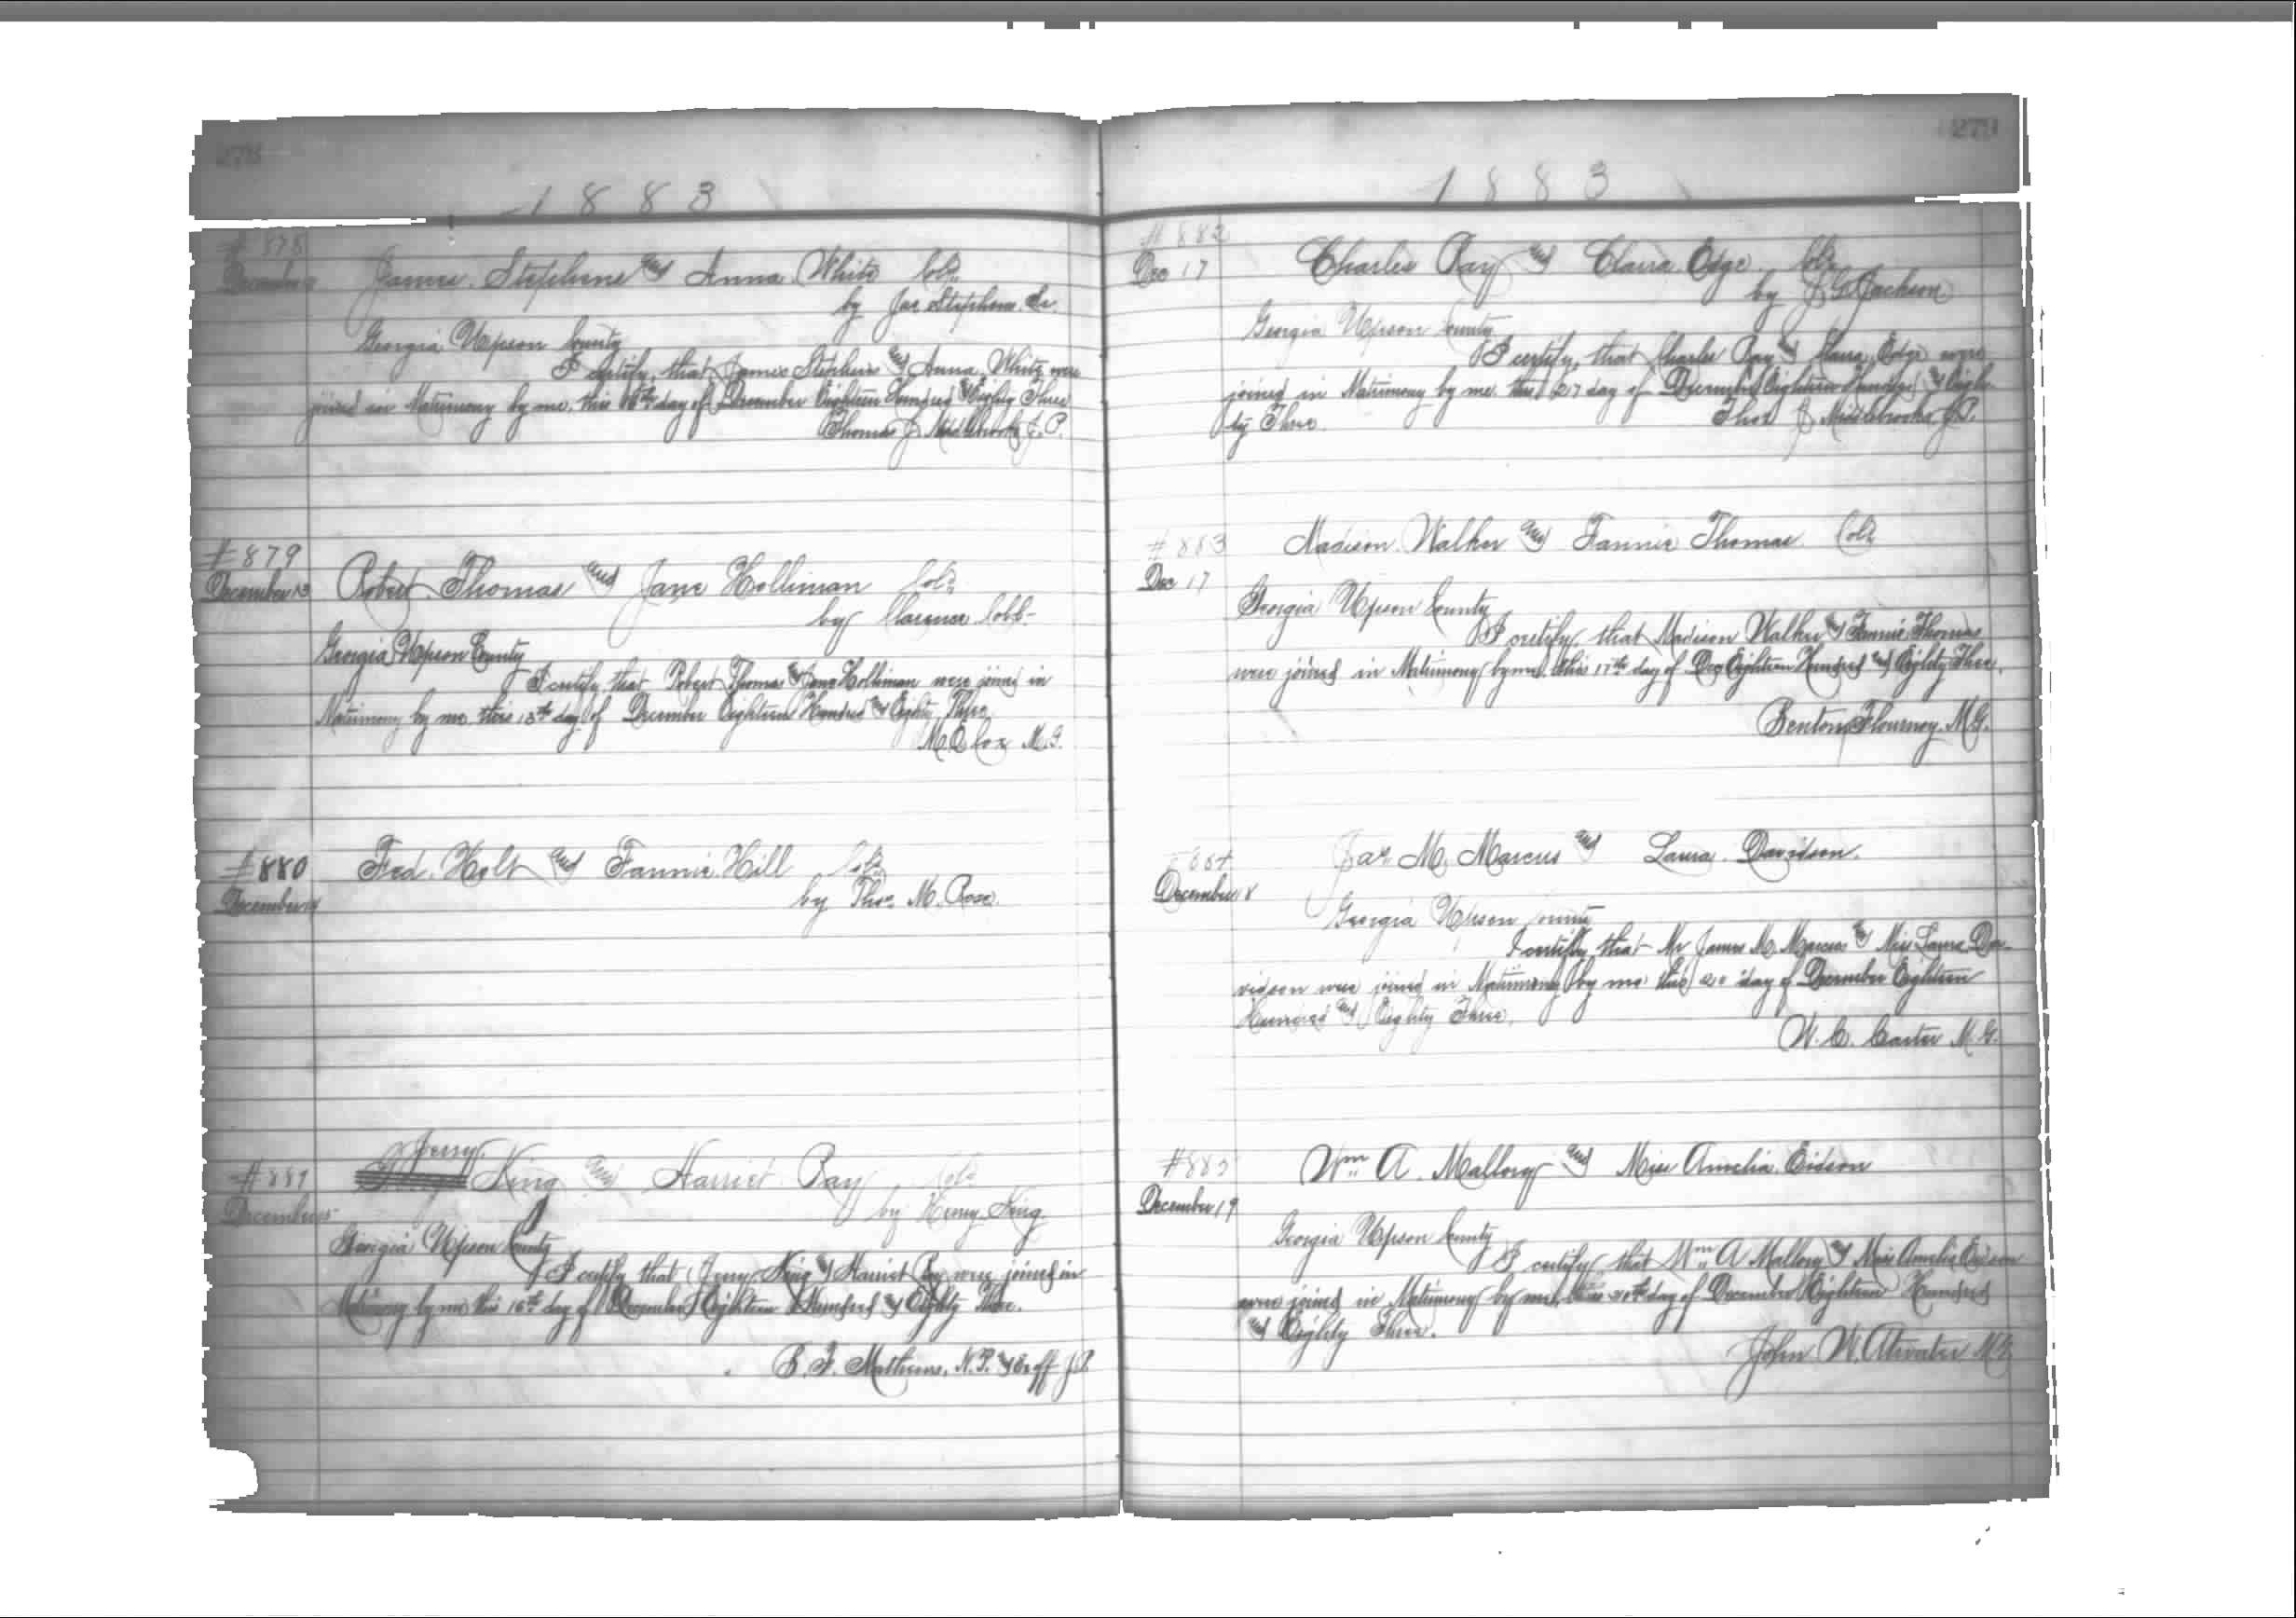 278
1883
# 878
December
James Stephens and Anna White Cold.
by Jas Stephens Sr.
Georgia Upson County
I certify, that James Stephens and Anna White were
joined in Matrimony by me this day of December Eighteen Hundred & Eighty Three
Thomas J. Middlebrooks J. P.
#879
December 13
Robert Thomas and Jane Holliman Cold.
by Clarence Cobb
Georgia Upson County
I certify that Robert Thomas & Jane Holliman were joined in
Matrimony by me this 13th day of December Eighteen Hundred & Eighty Three
M. E. Cox M. G.
#880
December
Fed. Holt and Fannie Hill Cold.
by Thos. M. Rose.
#881
December 15
Jerry
King and Harriet Ray Cold.
by Henry King
Georgia Upson County
I certify that Jerry King & Harriet Ray were joined in
Matrimony by me this 16th day of December Eighteen Hundred & Eighty Three.
B. F. Mathews, N. P. & Exoff J. P.
279
1883
# 882
Dec 17
Charles Ray and Clara Edge. Cold.
by J. G. Jackson
Georgia Upson County
I certify, that Charles Ray & Clara Edge were
joined in Matrimony by me this 27 day of December Eighteen Hundred & Eigh-
ty Three.
Thos J Middlebrooks J. P.
# 883
Dec 17
Madison Walker and Fannie Thomas. Cold
Georgia Upson County
I certify, that Madison Walker & Fannie Thomas
were joined in Matrimony by me this 17th day of Dec Eighteen Hundred and Eighty Three.
Benton Flournoy. M. G.
884
December 18
Jas. M. Marcus and Laura Davidson.
Georgia Upson County
I certify, that Mr James M. Marcus & Miss Laura Da-
vidson were joined in Matrimony by me this 20 day of December Eighteen
Hundred and Eighty Three.
W. C. Carter M. G.
#885
December 19
Wm A. Mallory and Miss Amelia Eidson
Georgia Upson County
I certify that Wm A Mallory & Miss Amelia Eidson
were joined in Matrimony by me, this 20th day of December Eighteen Hundred
and Eighty Three.
John W. Atwater M. G.